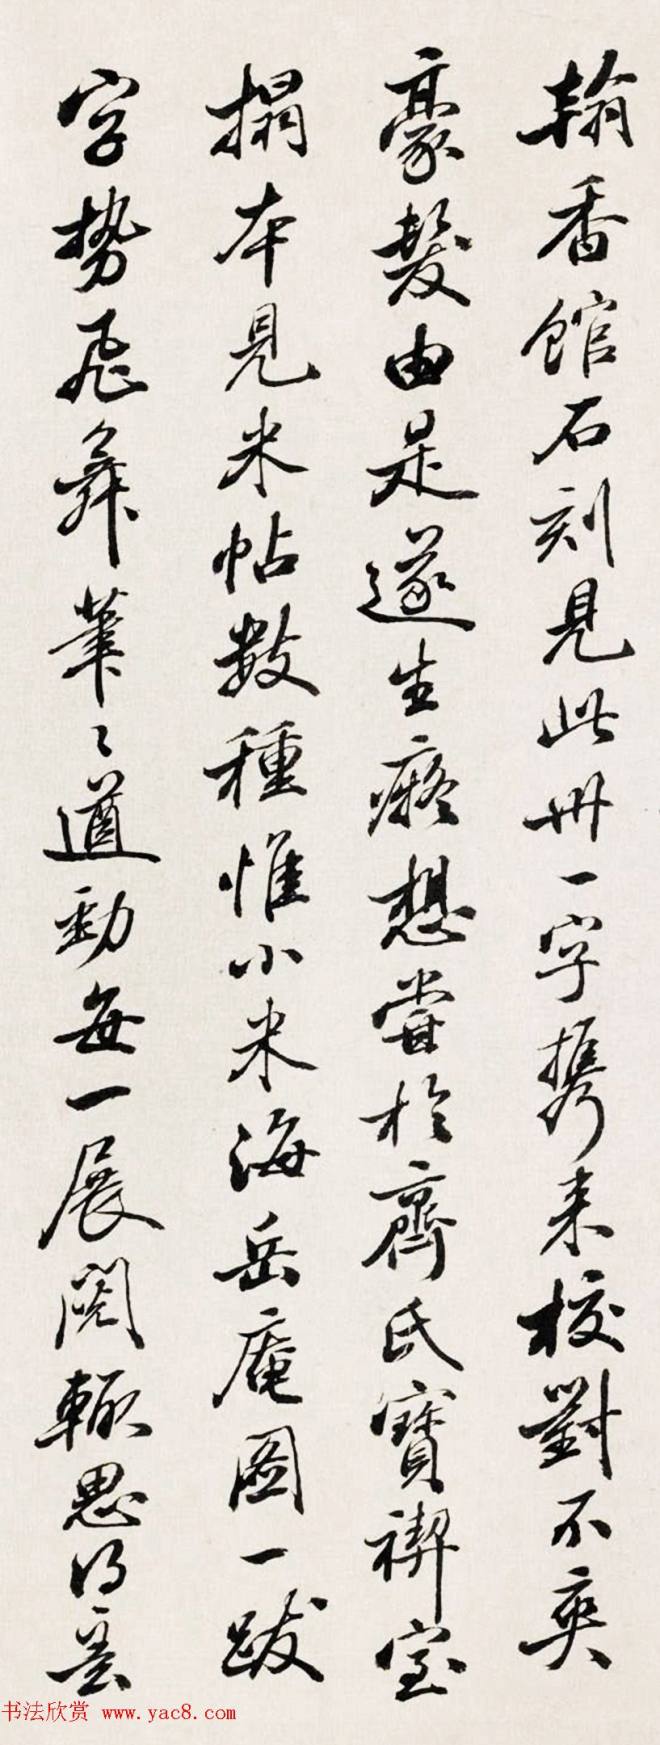 翰香馆石刻見此卌一字携来校對不爽
豪髮由是遂生癡想嘗於齊氏寶禊室
搨本見米帖数種惟小米海岳庵圖一跋
字势飛舞筆〻遒勁每一展閱輒思得
书法欣赏 www.yac8.com